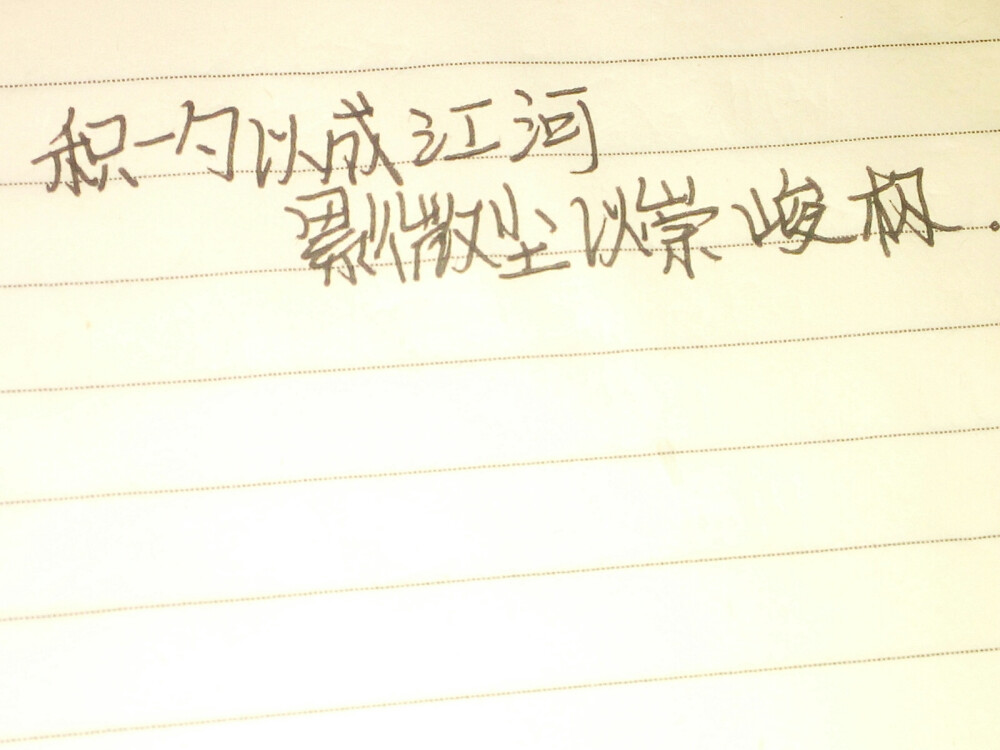 积一勺以成江河
累微尘以崇峻极.